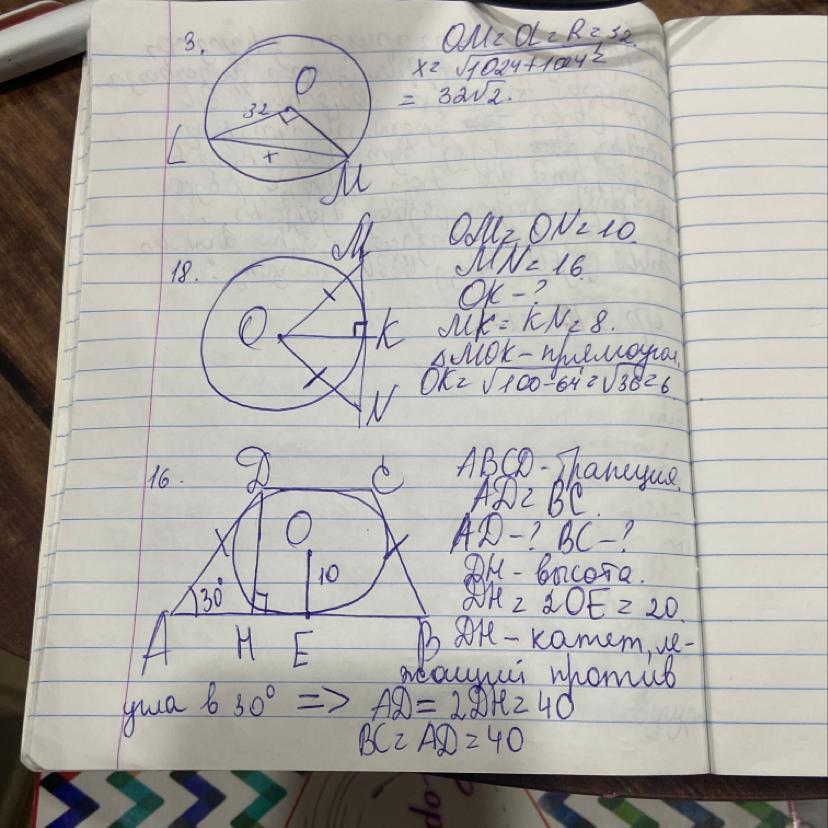 3.
O
32
L
x
M
OM = OL = R = 32.
x = √1024+1024 =
= 32√2.
18.
M
O
K
N
OM = ON = 10.
MN = 16.
OK - ?
MK = KN = 8.
△MOK - прямоугол.
OK = √100-64 = √36 = 6.
16.
D
C
O
10
30°
A
H
E
B
ABCD - трапеция.
AD = BC.
AD - ? BC - ?
DH - высота.
DH = 2OE = 20.
DH - катет, ле-
жащий против
угла в 30° => AD = 2DH = 40
BC = AD = 40